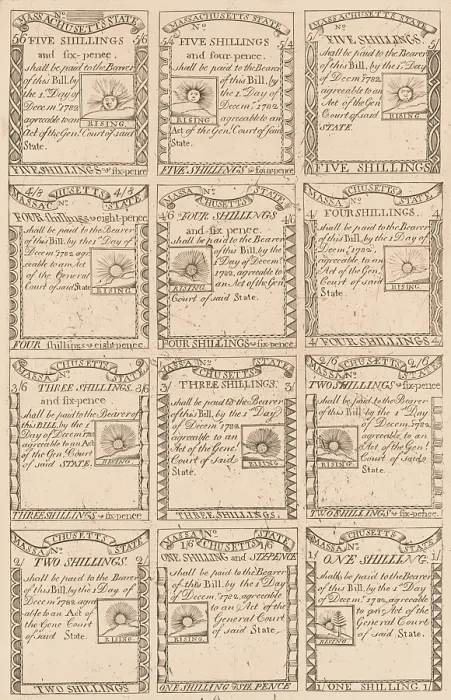 MASSACHUSETTS STATE
No
5/6 FIVE SHILLINGS 5/6
and six-pence.
shall be paid to the Bearer
of this Bill, by
the 1st Day of
Decemr. 1782
agreeable to an
RISING
Act of the Genl. Court of said
State.
FIVE SHILLINGS & six-pence
MASSACHUSETTS STATE
No
5/4 FIVE SHILLINGS 5/4
and four-pence.
shall be paid to the Bearer
of this Bill, by
the 1st Day of
Decemr. 1782
agreeable to an
RISING
Act of the Genl. Court of said
State.
FIVE SHILLINGS & four-pence
MASSACHUSETTS STATE
No
5/ FIVE SHILLINGS. 5/
shall be paid to the Bearer
of this Bill, by the 1st Day
of Decemr. 1782,
agreeable to an
Act of the Genl.
Court of said
RISING
STATE.
FIVE SHILLINGS
4/8 MASSACHUSETTS STATE 4/8
No
FOUR shillings & eight-pence
shall be paid to the Bearer
of this Bill, by the 1st Day of
Decemr. 1782 agre
eable to an Act
of the General
Court of said State
RISING
FOUR shillings & eight-pence.
MASSACHUSETTS STATE
No
4/6 FOUR SHILLINGS 4/6
and six pence
shall be paid to the Bearer
of this Bill, by the
1st Day of Decemr.
1782, agreeable to
an Act of the Genl.
RISING
Court of said State.
FOUR SHILLINGS & six-pence.
MASSACHUSETTS STATE
No
4/ FOUR SHILLINGS. 4/
shall be paid to the Bearer
of this Bill, by the 1st Day of
Decemr. 1782,
agreeable to an
Act of the Genl.
Court of said
RISING
State.
4/ FOUR SHILLINGS 4/
MASSACHUSETTS STATE
No
3/6 THREE SHILLINGS. 3/6
and six-pence.
shall be paid to the Bearer of
this BILL, by the 1st
Day of Decemr. 1782
agreeable to an Act
of the Genl. Court
of said STATE.
RISING
THREE SHILLINGS & six-pence.
MASSACHUSETTS STATE
No
3/ THREE SHILLINGS. 3/
shall be paid to the Bearer
of this Bill, by the 1st Day
of Decemr. 1782
agreeable to an
Act of the Genl.
Court of said
RISING
State.
THREE SHILLINGS.
2/6 MASSACHUSETTS STATE 2/6
No
TWO SHILLINGS & six-pence
shall be paid to the Bearer
of this Bill by the 1st Day
of Decemr. 1782,
agreeable to an
Act of the Genl.
Court of said
RISING
State.
TWO SHILLINGS & six-pence.
MASSACHUSETTS STATE
No
2/ TWO SHILLINGS. 2/
shall be paid to the Bearer
of this Bill, by the 1st Day of
Decemr. 1782, agree
able to an Act of
the Genl. Court
of said State.
RISING
TWO SHILLINGS
MASSACHUSETTS STATE
No
1/6 1/6
ONE SHILLING and SIXPENCE
shall be paid to the Bearer
of this Bill, by the 1st Day
of Decemr. 1782, agreeable
to an Act of the
General Court of
said State.
RISING
ONE SHILLING & SIX, PENCE
MASSACHUSETTS STATE
No
1/ ONE SHILLING. 1/
shall be paid to the Bearer
of this Bill, by the 1st Day
of Decemr. 1782, agreeable
to an Act of the
General Court
of said State.
RISING
1/ ONE SHILLING 1/